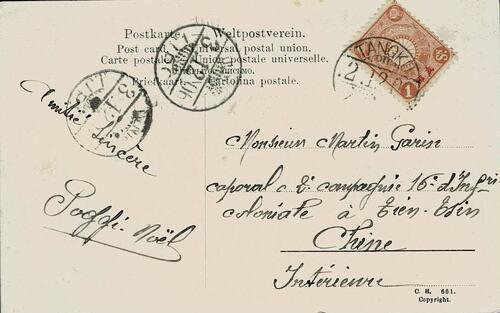 Postkarte Weltpostverein.
Post card Universal postal union.
Carte postale Union postale universelle.
Briefkaart Cartolina postale.
TANGKU
1
Amitié Sincère
Poggi-Noël
Monsieur Martin Garin
caporal 2e compagnie 16e d'Inf.
coloniale à Tien-Tsin
Chine
Intérieure
C. H. 661.
Copyright.